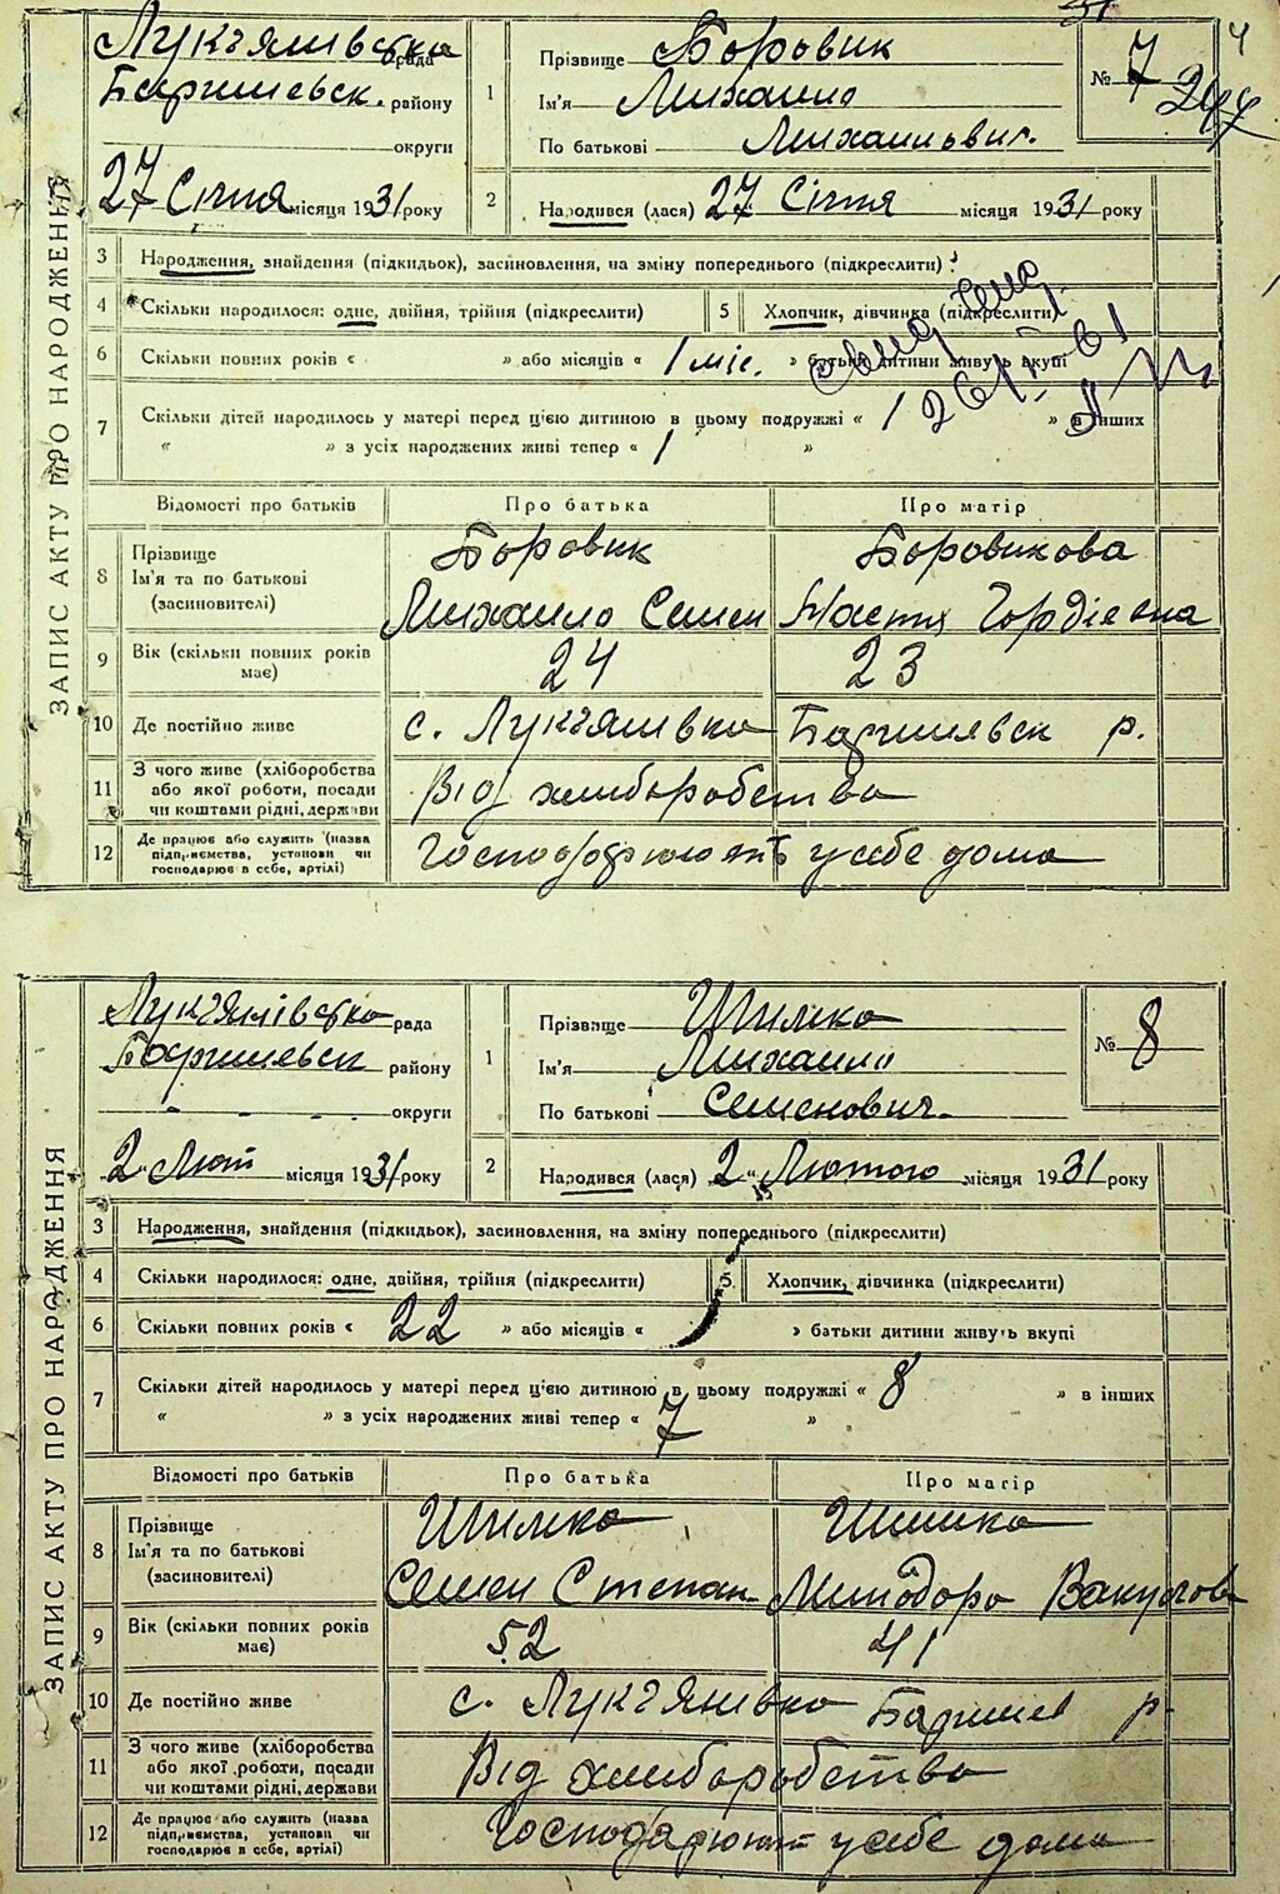 Лук'янівська рада
Баришевськ. району
округи
27 Січня місяця 1931 року
1
Прізвище Боровик
Ім'я Михайло
По батькові Михаильвич.
№ 7
4
2
Народився (лася) 27 Січня місяця 1931 року
ЗАПИС АКТУ ПРО НАРОДЖЕННЯ
3 Народження, знайдення (підкидьок), засиновлення, на зміну попереднього (підкреслити)
4 Скільки народилося: одне, двійня, трійня (підкреслити) 5 Хлопчик, дівчинка (підкреслити)
6 Скільки повних років « » або місяців « 1 міс. » батьки дитини живуть вкупі
7 Скільки дітей народилось у матері перед цією дитиною в цьому подружжі « 1 » в інших
« » з усіх народжених живі тепер « 1 »
Відомості про батьків Про батька Про матір
8 Прізвище Ім'я та по батькові (засиновителі) Боровик Боровикова
Михаило Семен Настя Гордіевна
9 Вік (скільки повних років має) 24 23
10 Де постійно живе с. Лук'янивка Баришевськ р.
11 З чого живе (хліборобства або якої роботи, посади чи коштами рідні, держави Від хлиборобства
12 Де працює або служить (назва підприємства, установи чи господарює в себе, артілі) Господарюють у себе дома
Лук'янівська рада
Баришевськ району
округи
2 Лют місяця 1931 року
1
Прізвище Шимко
Ім'я Михаило
По батькові Семенович
№ 8
2
Народився (лася) 2 Лютого місяця 1931 року
ЗАПИС АКТУ ПРО НАРОДЖЕННЯ
3 Народження, знайдення (підкидьок), засиновлення, на зміну попереднього (підкреслити)
4 Скільки народилося: одне, двійня, трійня (підкреслити) 5 Хлопчик, дівчинка (підкреслити)
6 Скільки повних років « 22 » або місяців « » батьки дитини живуть вкупі
7 Скільки дітей народилось у матері перед цією дитиною в цьому подружжі « 8 » в інших
« » з усіх народжених живі тепер « 7 »
Відомості про батьків Про батька Про матір
8 Прізвище Ім'я та по батькові (засиновителі) Шимко Шимко
Семен Степан Минодора Вакулов
9 Вік (скільки повних років має) 52 41
10 Де постійно живе с. Лук'янивка Баришев р.
11 З чого живе (хліборобства або якої роботи, посади чи коштами рідні, держави Від хлиборобства
12 Де працює або служить (назва підприємства, установи чи господарює в себе, артілі) Господарюют у себе дома